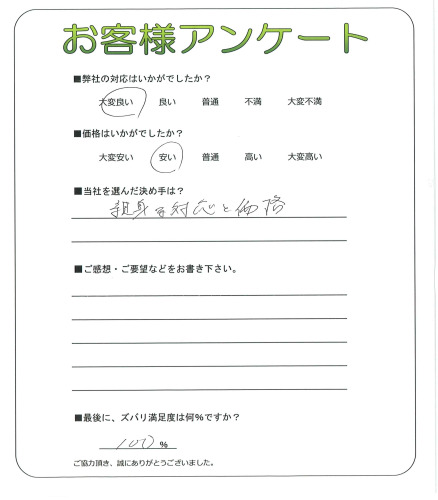 お客様アンケート
■弊社の対応はいかがでしたか？
大変良い 良い 普通 不満 大変不満
■価格はいかがでしたか？
大変安い 安い 普通 高い 大変高い
■当社を選んだ決め手は？
親身な対応と価格
■ご感想・ご要望などをお書き下さい。
■最後に、ズバリ満足度は何%ですか？
100 %
ご協力頂き、誠にありがとうございました。